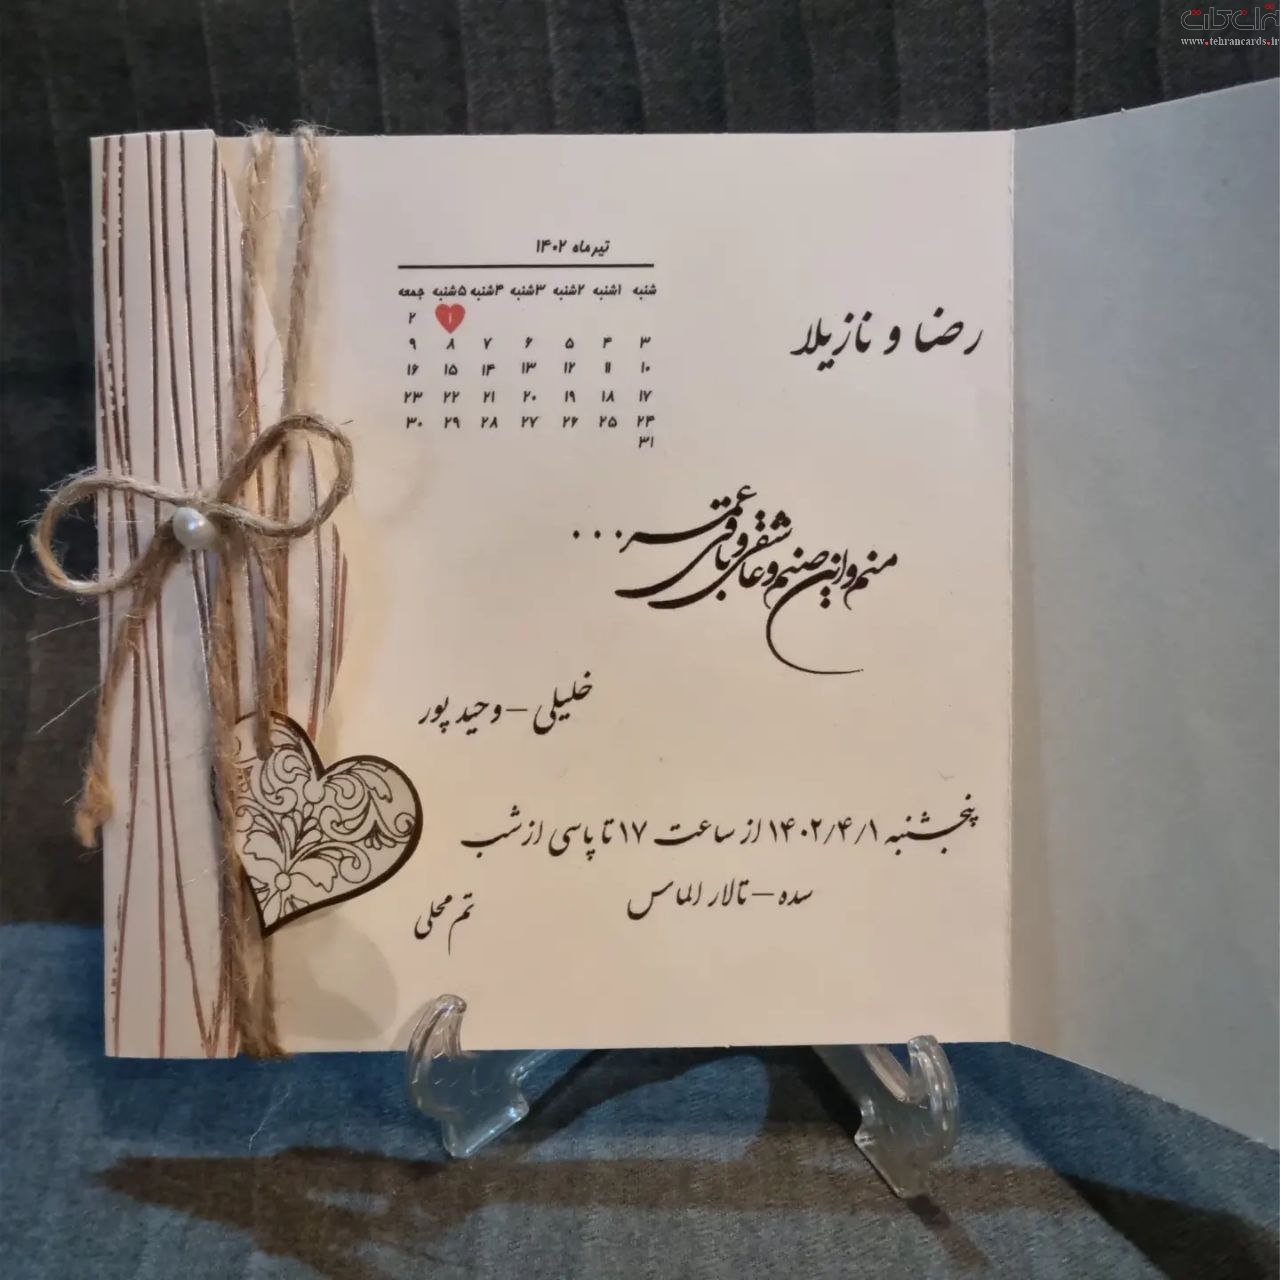 تهران کارت
www.tehrancards.ir
تیرماه ۱۴۰۲
شنبه ۱شنبه ۲شنبه ۳شنبه ۴شنبه ۵شنبه جمعه
۱ ۲
۳ ۴ ۵ ۶ ۷ ۸ ۹
۱۰ ۱۱ ۱۲ ۱۳ ۱۴ ۱۵ ۱۶
۱۷ ۱۸ ۱۹ ۲۰ ۲۱ ۲۲ ۲۳
۲۴ ۲۵ ۲۶ ۲۷ ۲۸ ۲۹ ۳۰
۳۱
رضا و نازیلا
منم و این صنم و عاشقی و باقی عمر...
خلیلی – وحید پور
پنجشنبه ۱۴۰۲/۴/۱ از ساعت ۱۷ تا پاسی از شب
سده – تالار الماس
تم محلی